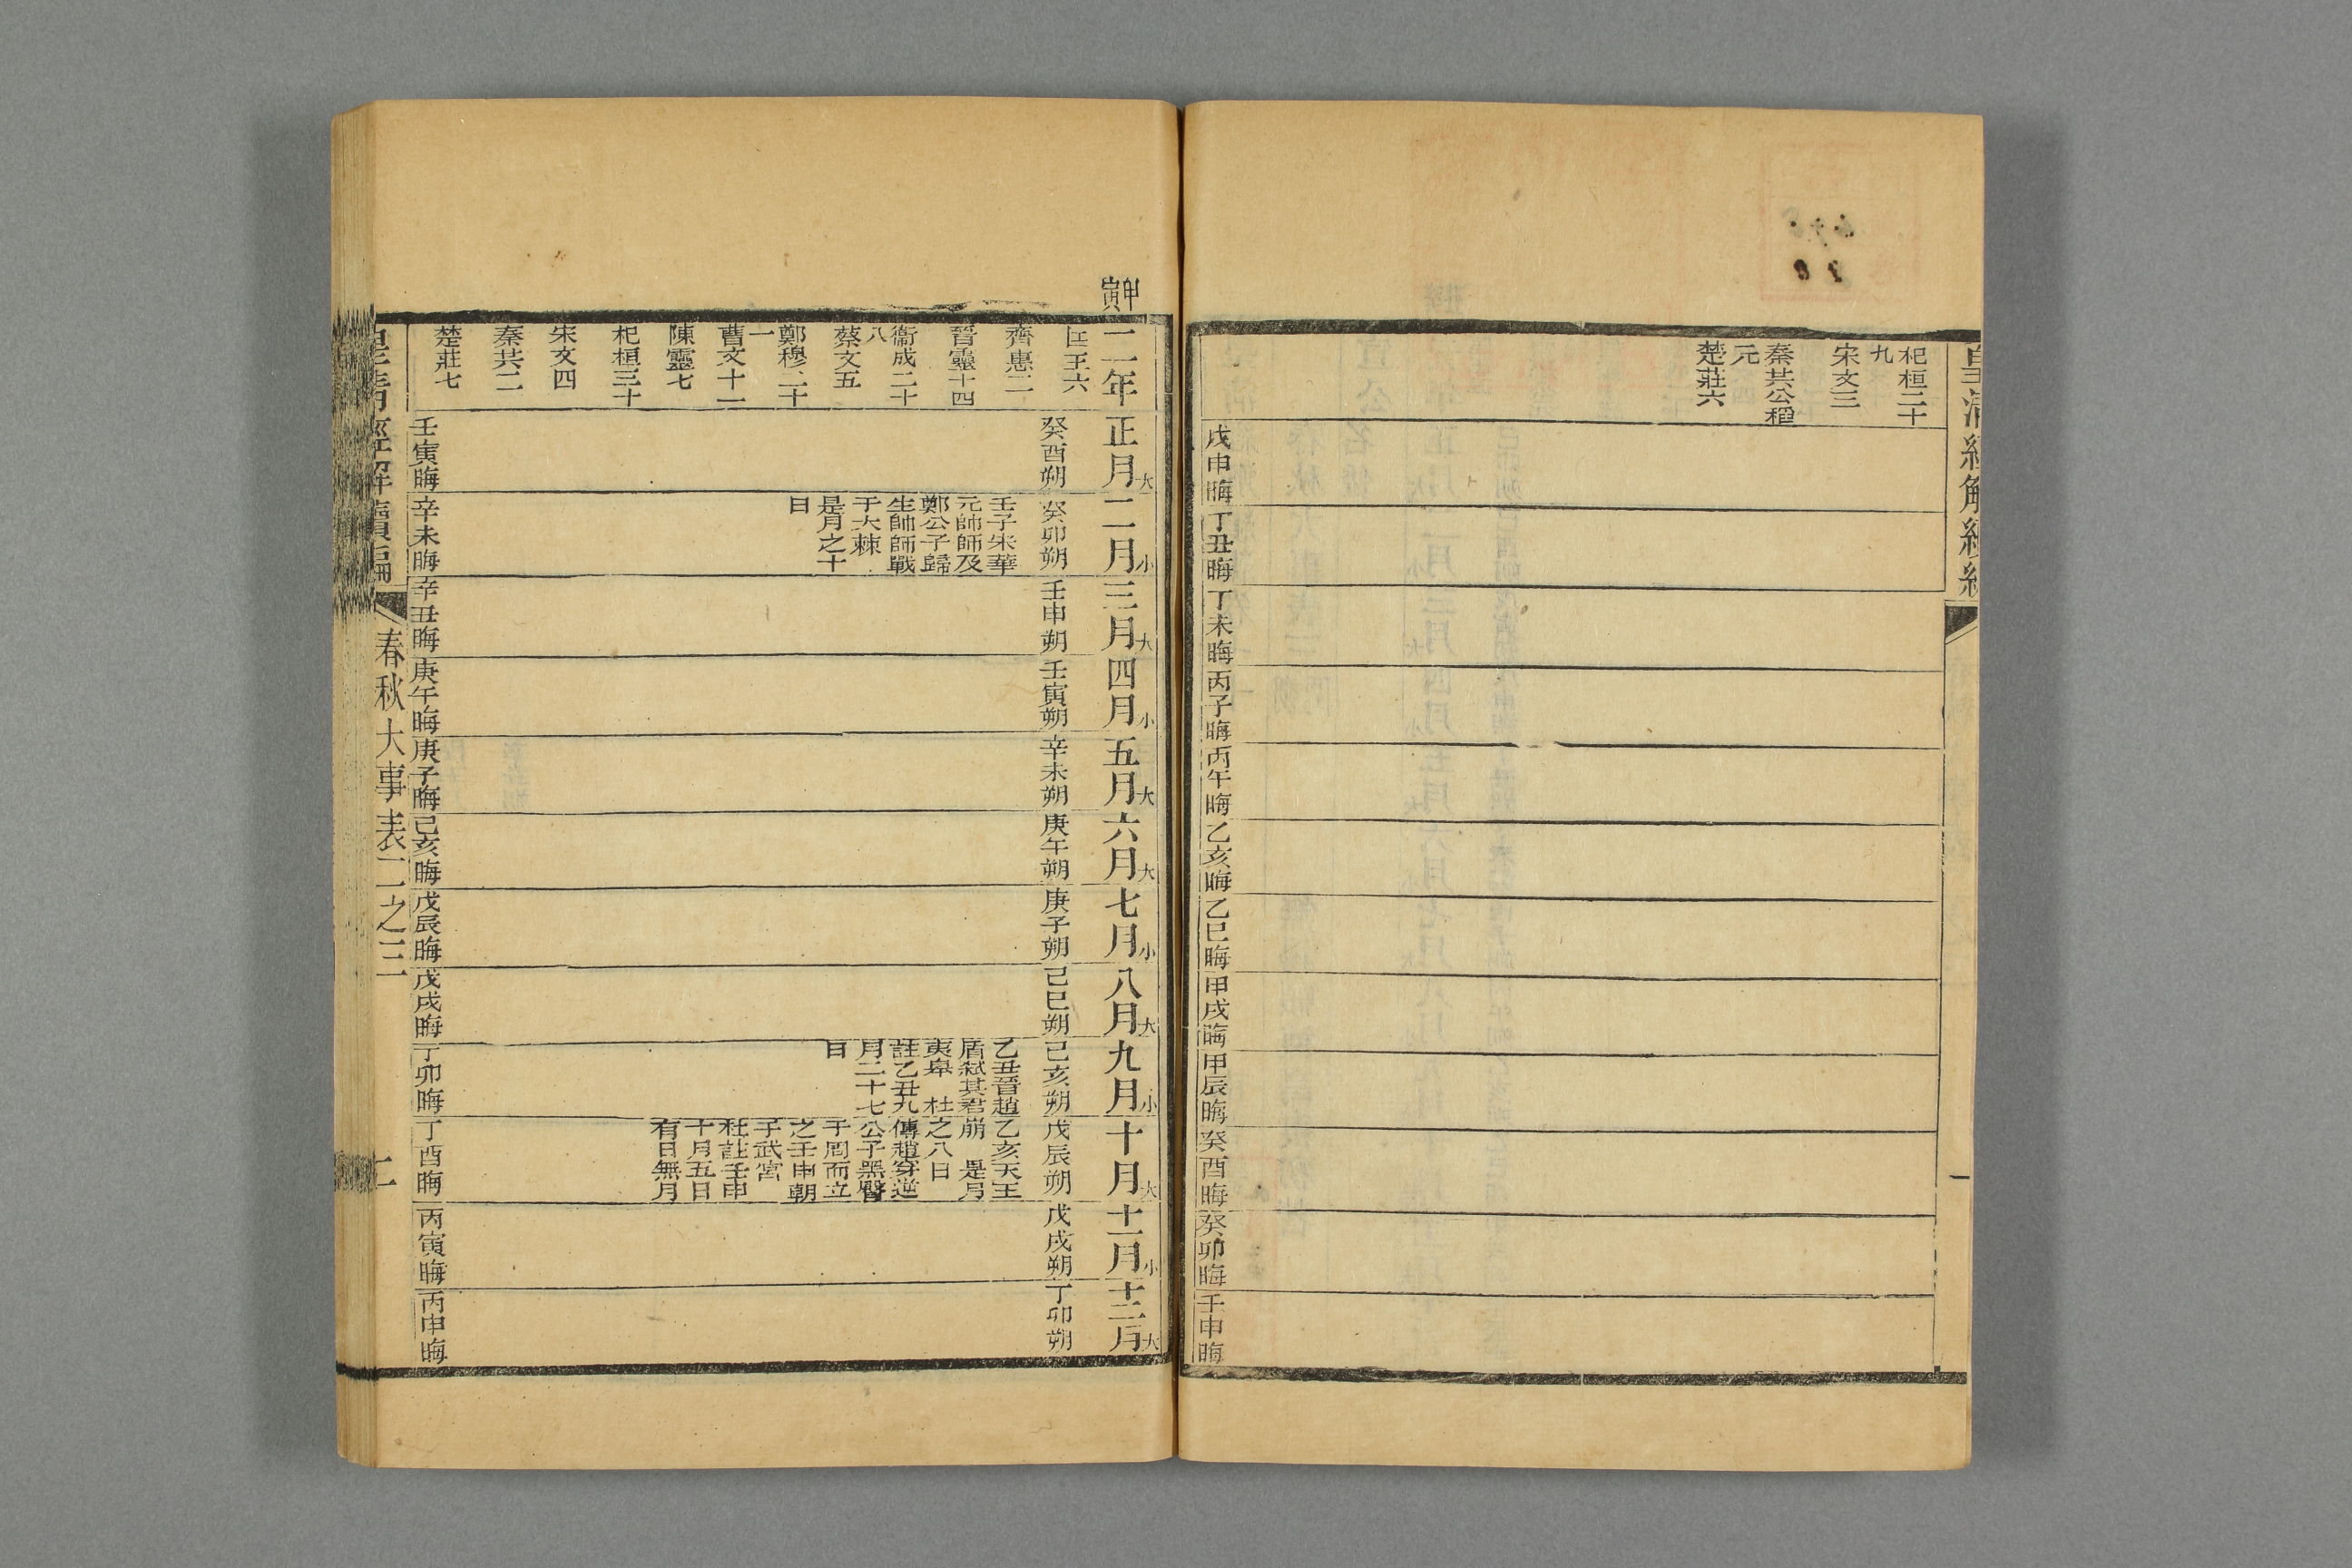 皇清經解續編
杞桓二十
九
宋文三
秦共公稻
元
楚莊六
一
戊申晦
丁丑晦
丁未晦
丙子晦
丙午晦
乙亥晦
乙巳晦
甲戌晦
甲辰晦
癸酉晦
癸卯晦
壬申晦
甲寅
二年
匡王六
齊惠二
晉靈十四
衞成二十
八
蔡文五
鄭穆二十
一
曹文十一
陳靈七
杞桓三十
宋文四
秦共二
楚莊七
正月大
癸酉朔
壬寅晦
二月小
癸卯朔
壬子宋華
元帥師及
鄭公子歸
生帥師戰
于大棘
是月之十
日
辛未晦
三月大
壬申朔
辛丑晦
四月小
壬寅朔
庚午晦
五月大
辛未朔
庚子晦
六月大
庚午朔
己亥晦
七月小
庚子朔
戊辰晦
八月大
己巳朔
戊戌晦
九月小
己亥朔
乙丑晉趙
盾弑其君
夷皋 杜
註乙丑九
月二十七
日
丁卯晦
十月大
戊辰朔
乙亥天王
崩 是月
之八日
傳趙穿逆
公子黑臀
于周而立
之壬申朝
于武宮
杜註壬申
十月五日
有日無月
丁酉晦
十一月小
戊戌朔
丙寅晦
十二月大
丁卯朔
丙申晦
皇清經解續編
春秋大事表二之三
二